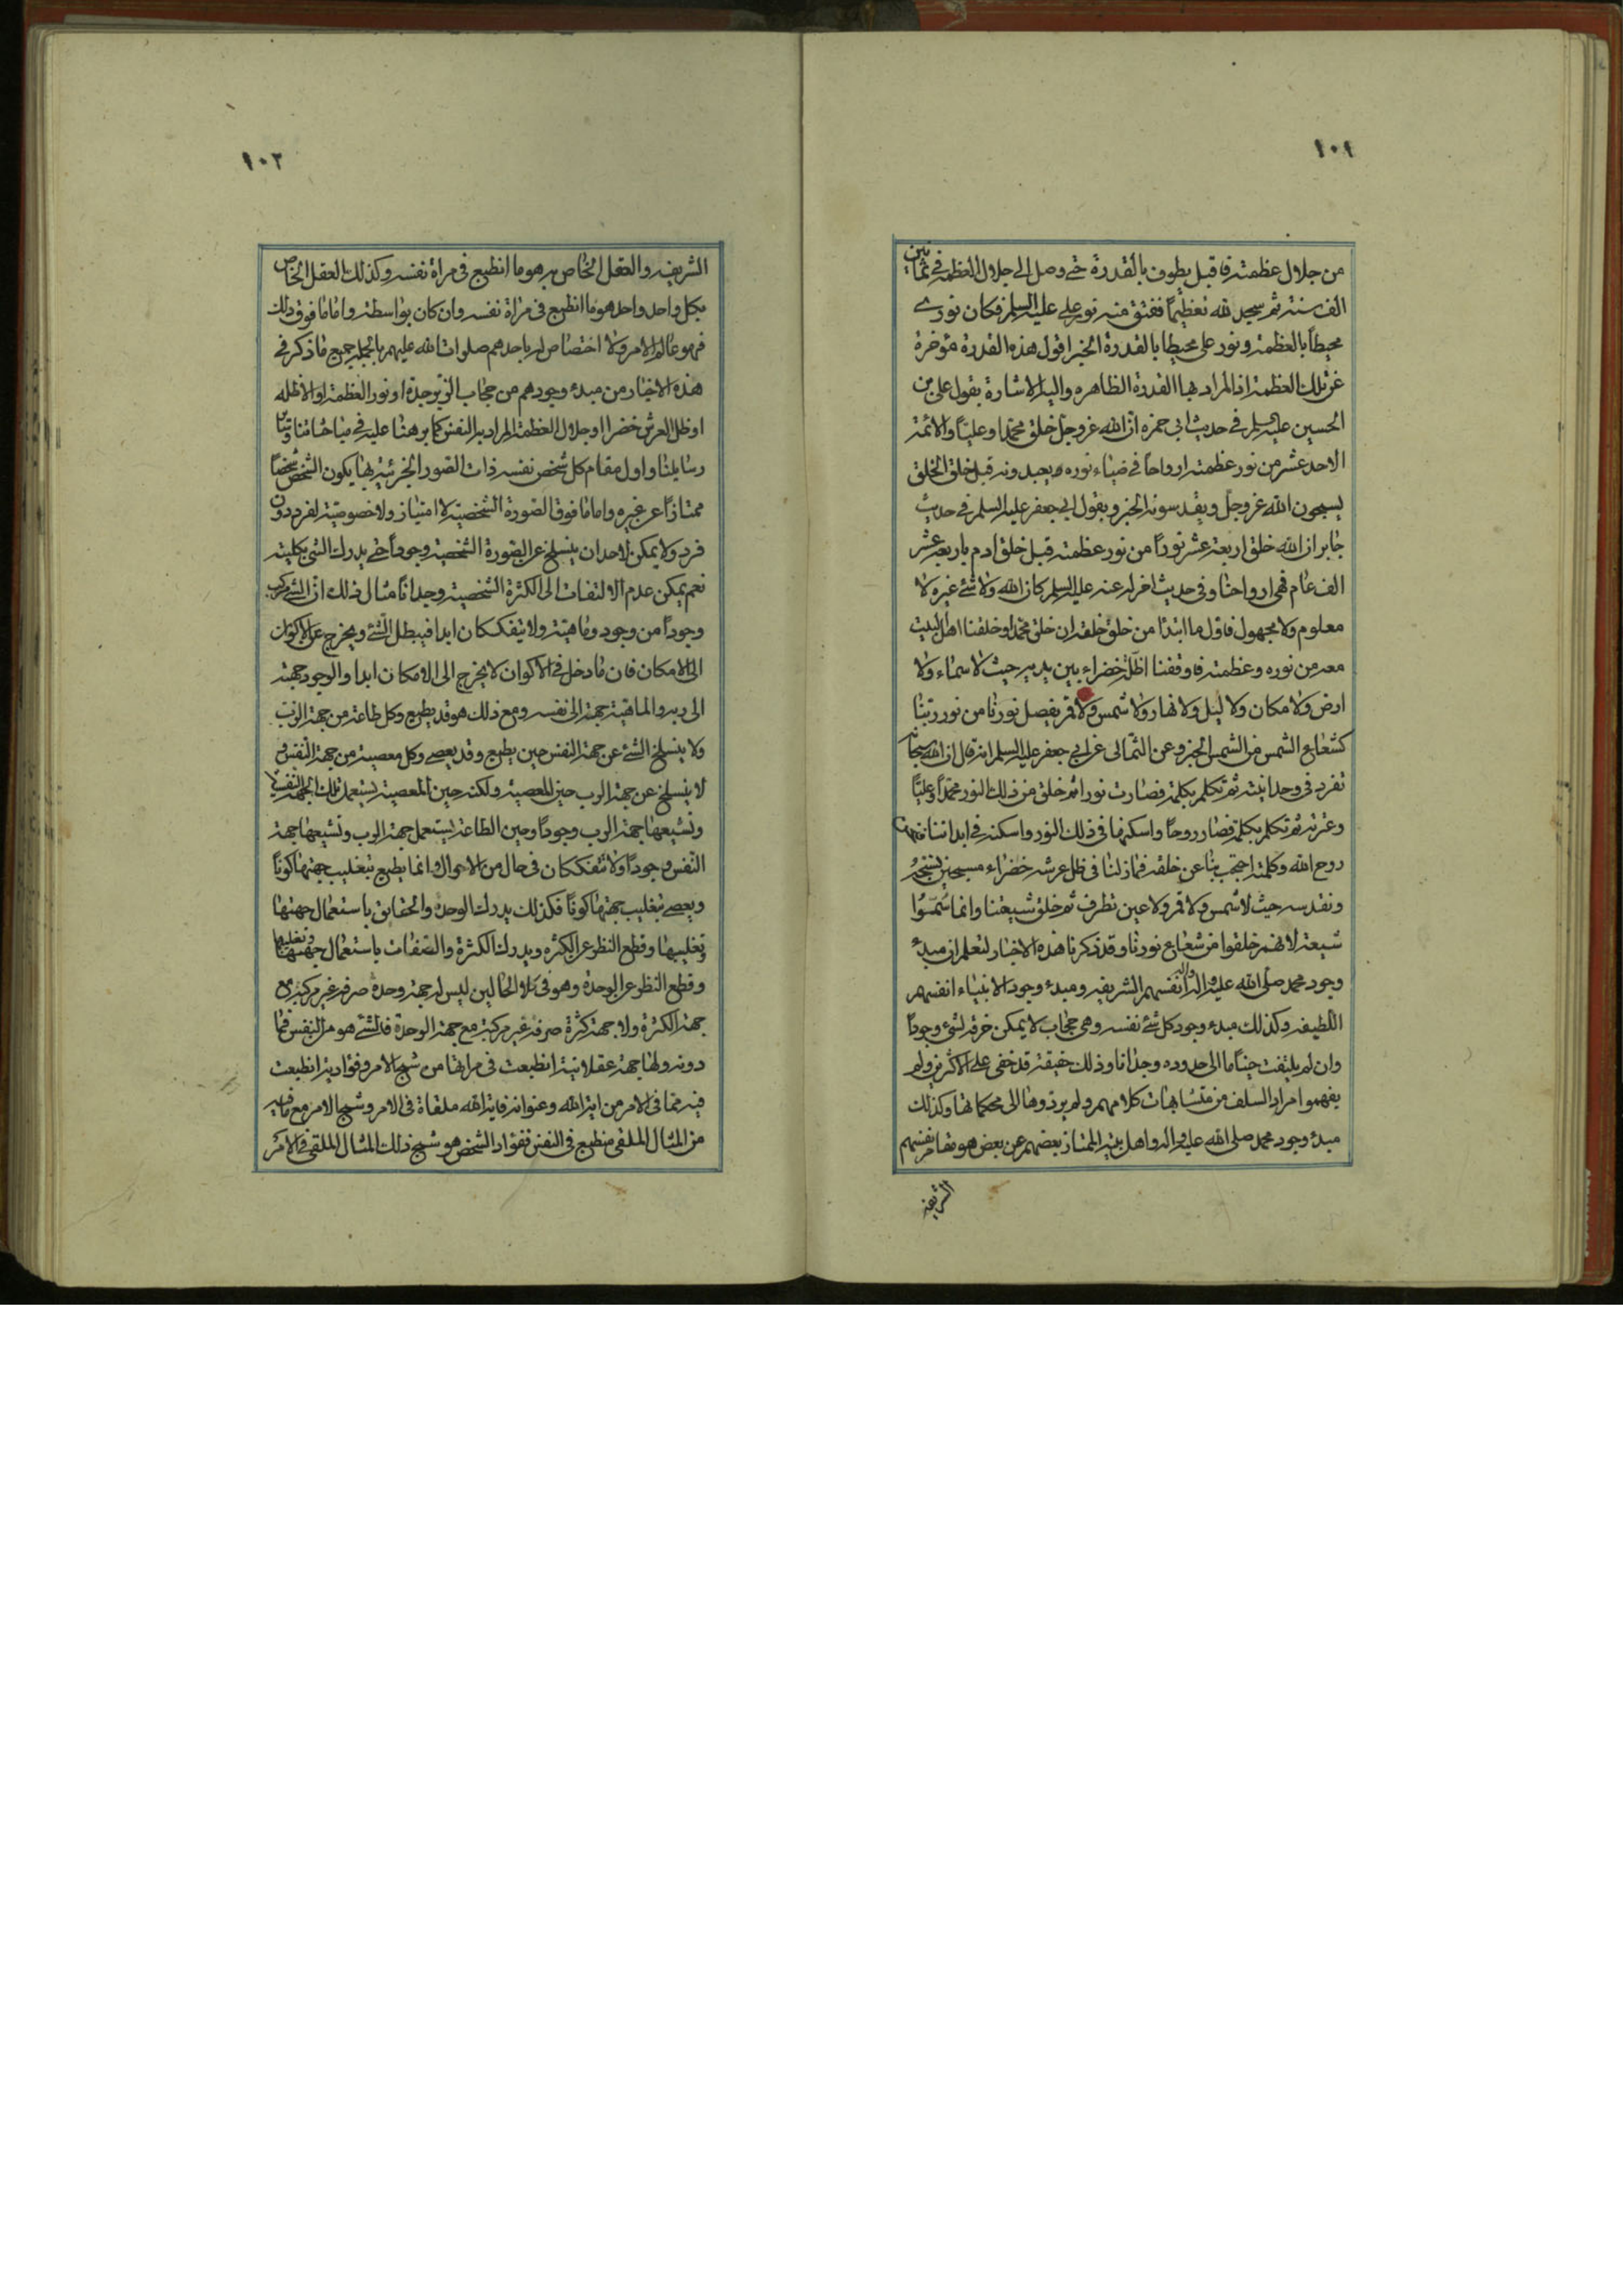 ١٠١
من جلال عظمته فاقبل يطوف بالقدرة حتى وصل الى جلال العظمة في ثمانين
الف سنة ثم سجد لله تعظيماً ففتق منه نور علي عليه السلم فكان نوري
محيطاً بالعظمة و نور علي محيطا بالقدرة الخبر اقول هذه القدرة مؤخرة
عن تلك العظمة اذ المراد بها القدرة الظاهره واليه الاشارة بقول علي بن
الحسين عليه السلم في حديث ابي حمزه ان الله عز وجل خلق محمدا وعليا والائمة
الاحد عشر من نور عظمته ارواحا في ضياء نوره يعبدونه قبل خلق الخلق
يسبحون الله عز وجل ويقدسونه الخبر وبقول ابي جعفر عليه السلم في حديث
جابر ان الله خلق اربعة عشر نوراً من نور عظمته قبل خلق ادم باربعة عشر
الف عام فهي ارواحنا وفي حديث اخر له عنه عليه السلم كان الله ولا شئ غيره لا
معلوم ولا مجهول فاول ما ابتدأ من خلق خلقه ان خلق محمدا وخلقنا اهل البيت
معه من نوره وعظمته فاوقفنا اظلة خضراء بين يديه حيث لا سماء ولا
ارض ولا مكان ولا ليل ولا نهار ولا شمس ولا قمر يفصل نورنا من نور ربنا
كشعاع الشمس من الشمس الخبر وعن الثمالي عن ابي جعفر عليه السلم انه قال ان الله سبحانه
تفرد في وحدانيته ثم تكلم بكلمة فصارت نورا ثم خلق من ذلك النور محمداً وعلياً
وعترته ثم تكلم بكلمة فصار روحاً واسكنها في ذلك النور واسكنه في ابداننا فنحن
روح الله وكلمته احتجب بنا عن خلقه فما زلنا في ظل عرشه خضراء مسبحين نسبحه
ونقدسه حيث لا شمس ولا قمر ولا عين تطرف ثم خلق شيعتنا وانما سموا
شيعة لانهم خلقوا من شعاع نورنا وقد ذكرنا هذه الاخبار لتعلم ان مبدء
وجود محمد صلى الله عليه واله انفسهم الشريفه ومبدء وجود الانبياء انفسهم
اللطيفه وكذلك مبدء وجود كل شئ نفسه وهي حجاب لا يمكن خرقه لشئ وجوداً
وان لم يلتفت حيناً ما الى حدوده وجدانا وذلك حقيقة قد خفى على الاكثرين ولم
يفهموا مراد السلف من متشابهات كلامهم ولم يردوها الى محكماتها وكذلك
مبدء وجود محمد صلى الله عليه واله واهل بيته الممتاز بعضهم عن بعض هو مقام نفسهم
الشريفه
١٠٢
الشريفه والعقل الخاص به هو ما انطبع في مراة نفسه وكذلك العقل الخاص
بكل واحد واحد هو ما انطبع في مراة نفسه وان كان بواسطته واما ما فوق ذلك
فهو عالم الامر ولا اختصاص له باحدهم صلوات الله عليهم بالجمله جميع ما ذكر في
هذه الاخبار من مبدء وجودهم من حجاب الزبرجدة او نور العظمة او الاظله
او ظل العرش خضرا او جلال العظمة المراد به النفس كما برهنا عليه في مباحثاتنا و
رسايلنا واول مقام كل شخص نفسه ذات الصور الجزئية بها يكون الشخص شخصاً
ممتازاً عن غيره واما ما فوق الصورة الشخصية لا امتياز ولا خصوصية لفرد دون
فرد ولا يمكن لاحد ان ينسلخ عن الصورة الشخصية وجوداً حتى يدرك الشئ بكليته
نعم يمكن عدم الالتفات الى الكثرة الشخصية وجداناً مثال ذلك ان الشئ مركب
وجوداً من وجود وماهية ولا يتفككان ابدا فيبطل الشئ ويخرج عن الاكوان
الى الامكان فان ما دخل في الاكوان لا يخرج الى الامكان ابدا والوجود جهته
الى ربه والماهية جهته الى نفسه ومع ذلك هو قد يطيع وكل طاعة من جهة الرب
ولا ينسلخ الشئ عن جهة النفس حين يطيع وقد يعصي وكل معصية من جهة النفس و
لا ينسلخ عن جهة الرب حين المعصية ولكنه حين المعصية يستعمل تلك الجهة النفسية
وتشيعها جهة الرب وجوداً وحين الطاعة يستعمل جهة الرب وتشيعها جهة
النفس وجوداً ولا تتفككان في حال من الاحوال وانما يطيع بتغليب جهتها كوناً
ويعصي بتغليب جهتها كوناً فكذلك يدرك الوحدة والحقايق باستعمال جهتها
وتغليبها وقطع النظر عن الكثره ويدرك الكثرة والصفات باستعمال جهتها وتغليبها
وقطع النظر عن الوحدة وهو في كلا الحالين ليس له جهة وحدة صرفه غير مركبة مع
جهة الكثرة ولا جهة كثرة صرفه غير مركبة مع جهة الوحدة فالشئ هو من النفس فما
دونه ولها جهة عقلانية انطبعت في مراتها من شبح الامر وفؤادية انطبعت
فيه مما في الامر من اية الله وعنوانه فاية الله ملقاة في الامر وشبح الامر مع ما فيه
من المثال الملقى منطبع في النفس ففؤاد الشخص هو شبح ذلك المثال الملقى في الامر